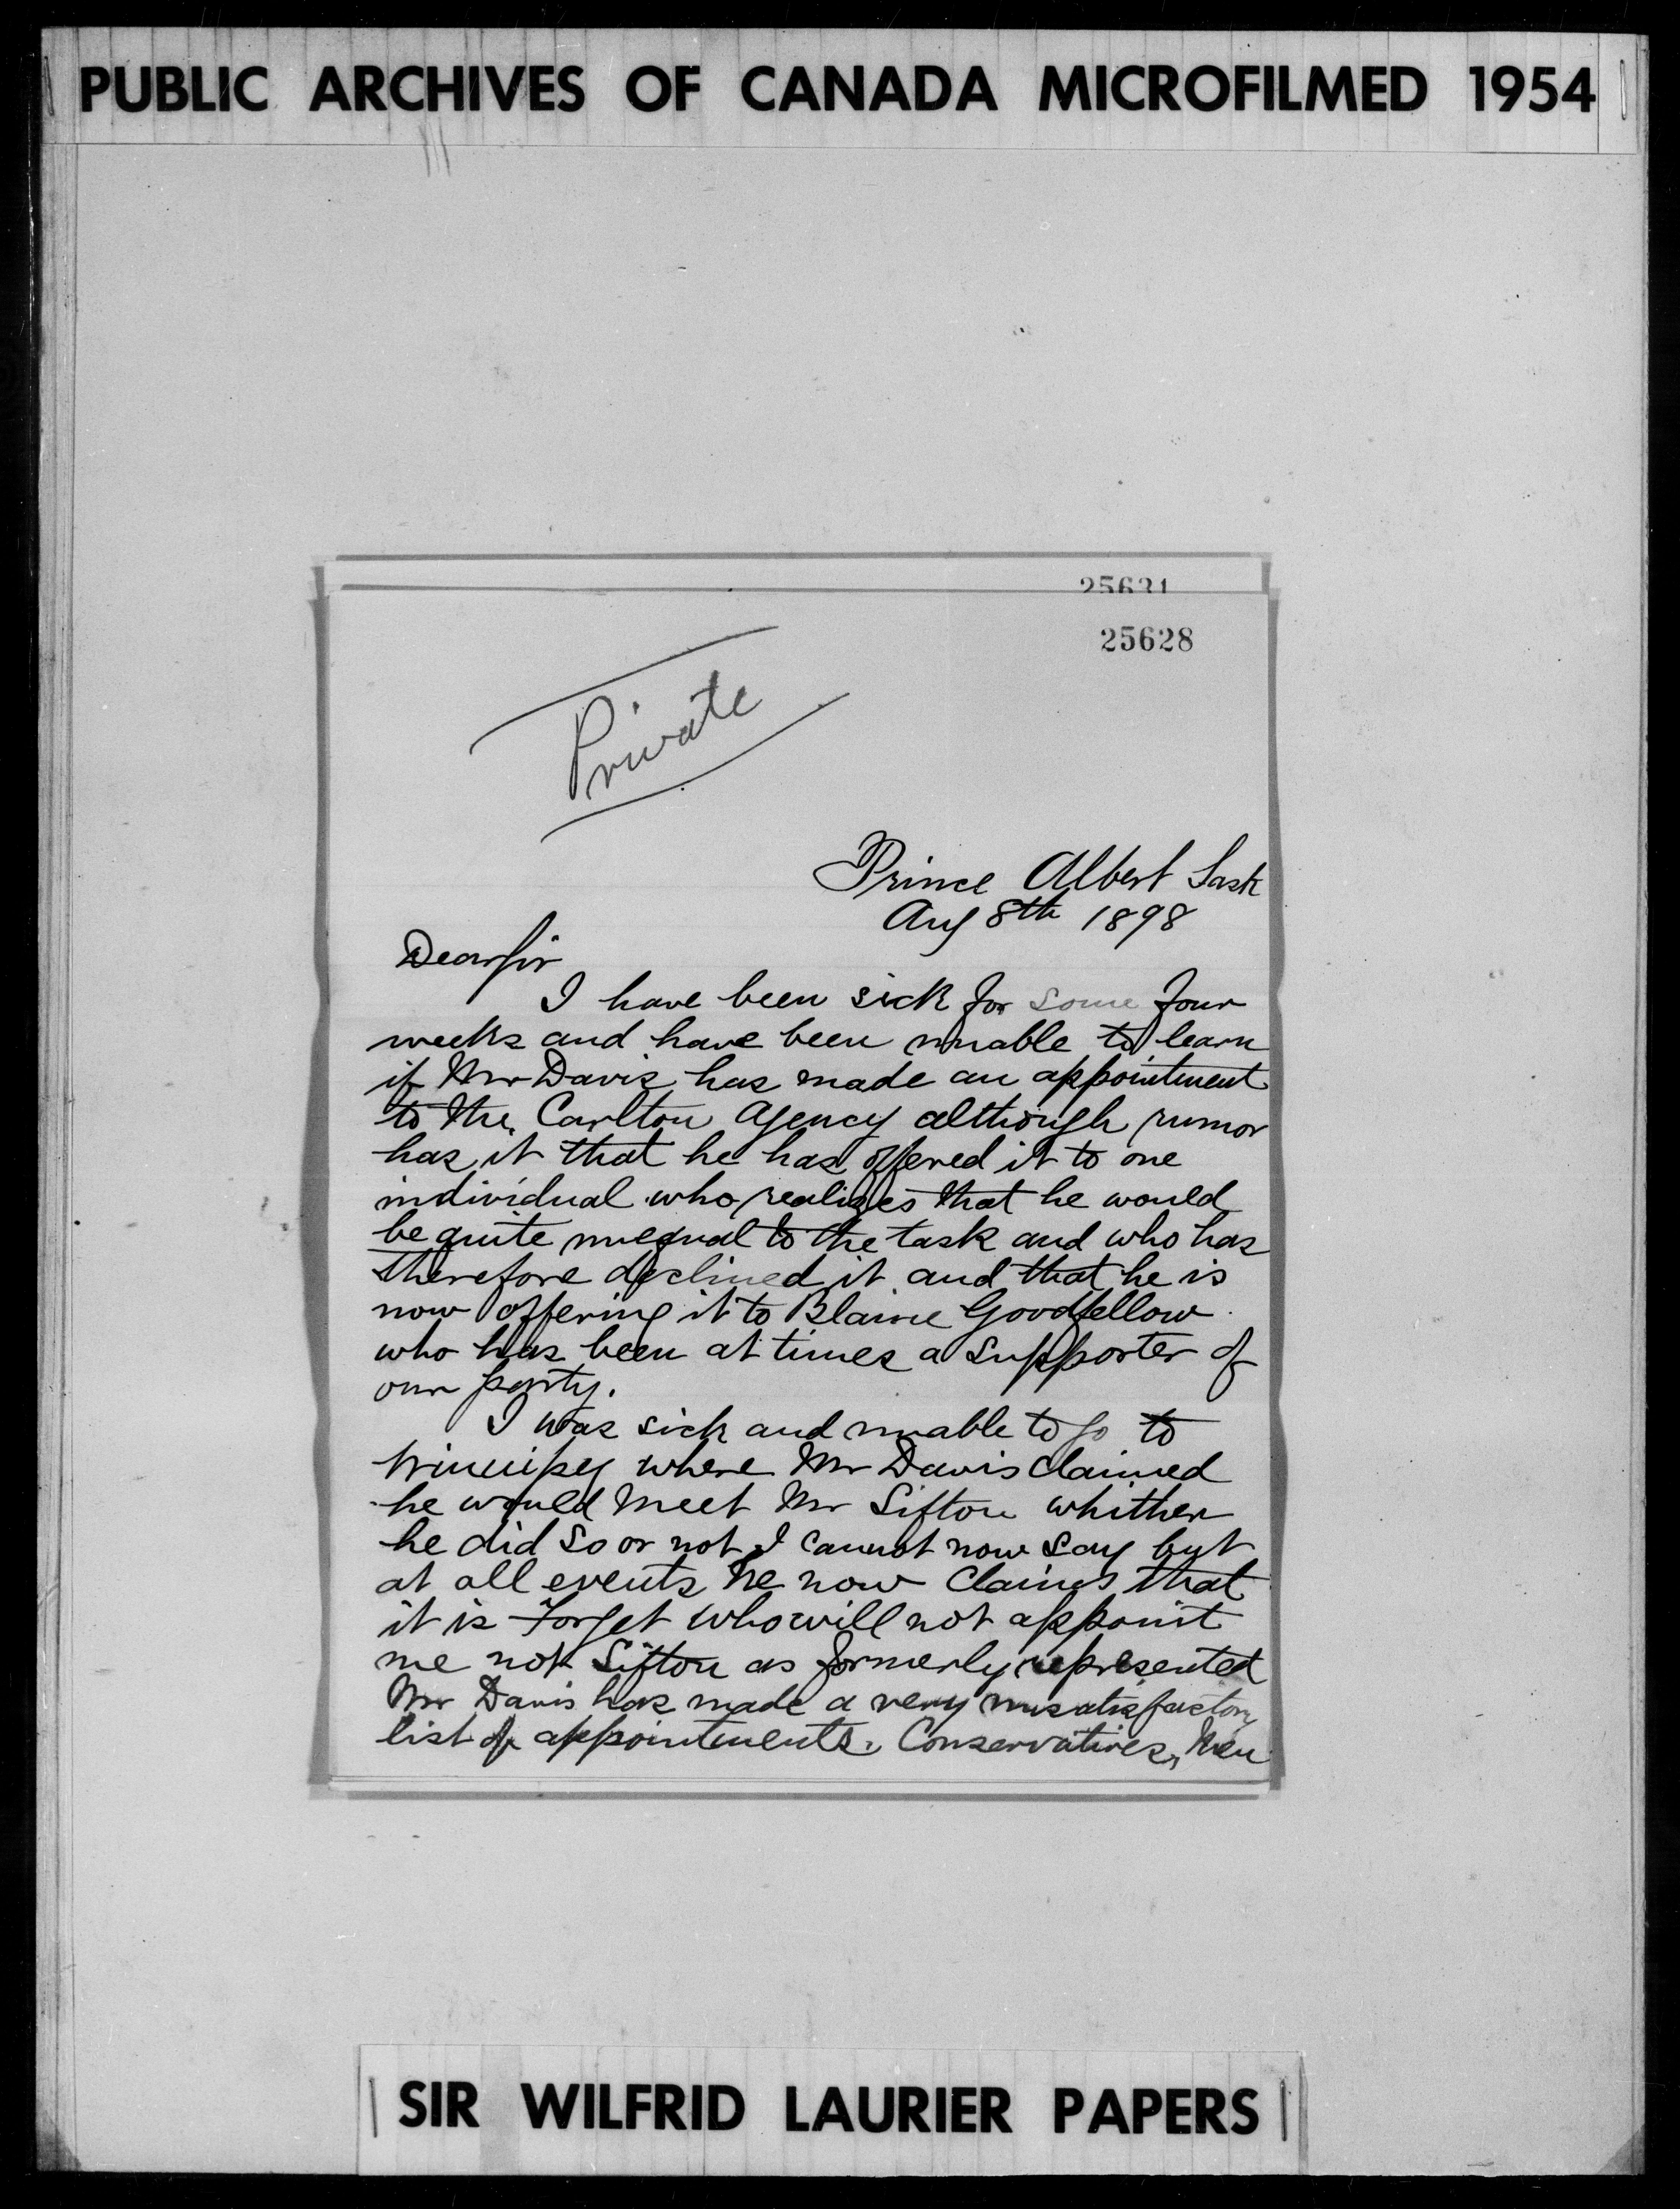 PUBLIC ARCHIVES OF CANADA MICROFILMED 1954
25631
25628
Private
Prince Albert Sask
Aug 8th 1898
Dear Sir
I have been sick for some four
weeks and have been unable to learn
if Mr Davis has made an appointment
to the Carlton Agency although rumor
has it that he has offered it to one
individual who realizes that he would
be quite unequal to the task and who has
therefore declined it and that he is
now offering it to Blaine Goodfellow
who has been at times a supporter of
our party.
I was sick and unable to go to
Winnipeg where Mr Davis claimed
he would meet Mr Sifton whither
he did so or not I cannot now say but
at all events he now claims that
it is Forget who will not appoint
me not Sifton as formerly represented
Mr Davis has made a very unsatisfactory
list of appointments. Conservatives, Men
SIR WILFRID LAURIER PAPERS